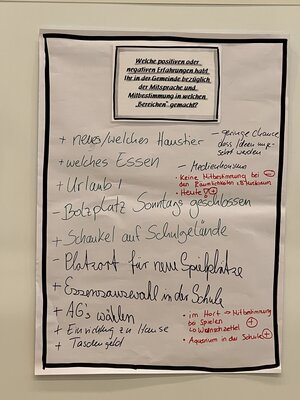 Welche positiven oder
negativen Erfahrungen habt
Ihr in der Gemeinde bezüglich
der Mitsprache und
Mitbestimmung in welchen
„Bereichen“ gemacht?
+ neues/welches Haustier
+ welches Essen
+ Urlaub!
- Bolzplatz Sonntag geschlossen
+ Schaukel auf Schulgelände
- Platzort für neue Spielplätze
+ Essensauswahl in der Schule
+ AG's wählen
+ Einrichtung zu Hause
+ Taschengeld
- geringe Chance
dass Ideen umge-
setzt werden
- Medienkonsum
• Keine Mitbestimmung bei
den Räumlichkeiten
• Heute! +
• im Hort → Mitbestimmung
bei Spielen
↳ Wunschzettel +
• Aquarium in der Schule +